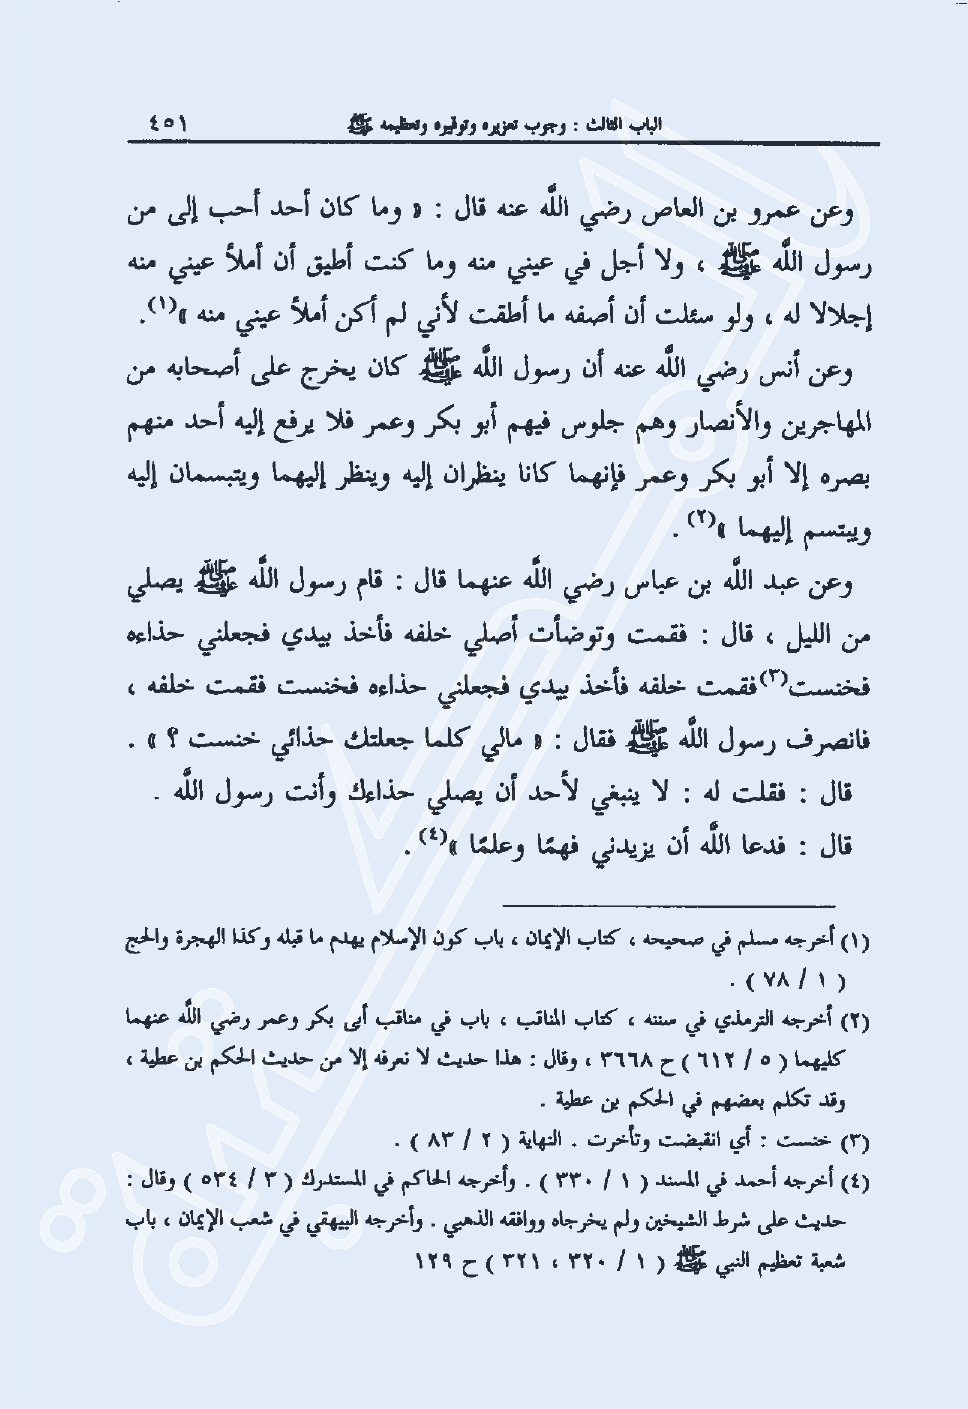 الباب الثالث : وجوب تعزيره وتوقيره وتعظيمه ﷺ ٤٥١
وعن عمرو بن العاص رضي اللَّه عنه قال : « وما كان أحد أحب إلى من
رسول اللَّه ﷺ ، ولا أجل في عيني منه وما كنت أطيق أن أملأ عيني منه
إجلالا له ، ولو سئلت أن أصفه ما أطقت لأني لم أكن أملأ عيني منه »(١).
وعن أنس رضي اللَّه عنه أن رسول اللَّه ﷺ كان يخرج على أصحابه من
المهاجرين والأنصار وهم جلوس فيهم أبو بكر وعمر فلا يرفع إليه أحد منهم
بصره إلا أبو بكر وعمر فإنهما كانا ينظران إليه وينظر إليهما ويتبسمان إليه
ويبتسم إليهما »(٢) .
وعن عبد اللَّه بن عباس رضي اللَّه عنهما قال : قام رسول اللَّه ﷺ يصلي
من الليل ، قال : فقمت وتوضأت أصلي خلفه فأخذ بيدي فجعلني حذاءه
فخنست(٣)فقمت خلفه فأخذ بيدي فجعلني حذاءه فخنست فقمت خلفه ،
فانصرف رسول اللَّه ﷺ فقال : « مالي كلما جعلتك حذائي خنست ؟ » .
قال : فقلت له : لا ينبغي لأحد أن يصلي حذاءك وأنت رسول اللَّه .
قال : فدعا اللَّه أن يزيدني فهمًا وعلمًا »(٤) .
(١) أخرجه مسلم في صحيحه ، كتاب الإيمان ، باب كون الإسلام يهدم ما قبله وكذا الهجرة والحج
( ١ / ٧٨ ) .
(٢) أخرجه الترمذي في سننه ، كتاب المناقب ، باب في مناقب أبى بكر وعمر رضي اللَّه عنهما
كليهما ( ٥ / ٦١٢ ) ح ٣٦٦٨ ، وقال : هذا حديث لا نعرفه إلا من حديث الحكم بن عطية ،
وقد تكلم بعضهم في الحكم بن عطية .
(٣) خنست : أي انقبضت وتأخرت . النهاية ( ٢ / ٨٣ ) .
(٤) أخرجه أحمد في المسند ( ١ / ٣٣٠ ) . وأخرجه الحاكم في المستدرك ( ٣ / ٥٣٤ ) وقال :
حديث على شرط الشيخين ولم يخرجاه ووافقه الذهبي . وأخرجه البيهقي في شعب الإيمان ، باب
شعبة تعظيم النبي ﷺ ( ١ / ٣٢٠ ، ٣٢١ ) ح ١٢٩